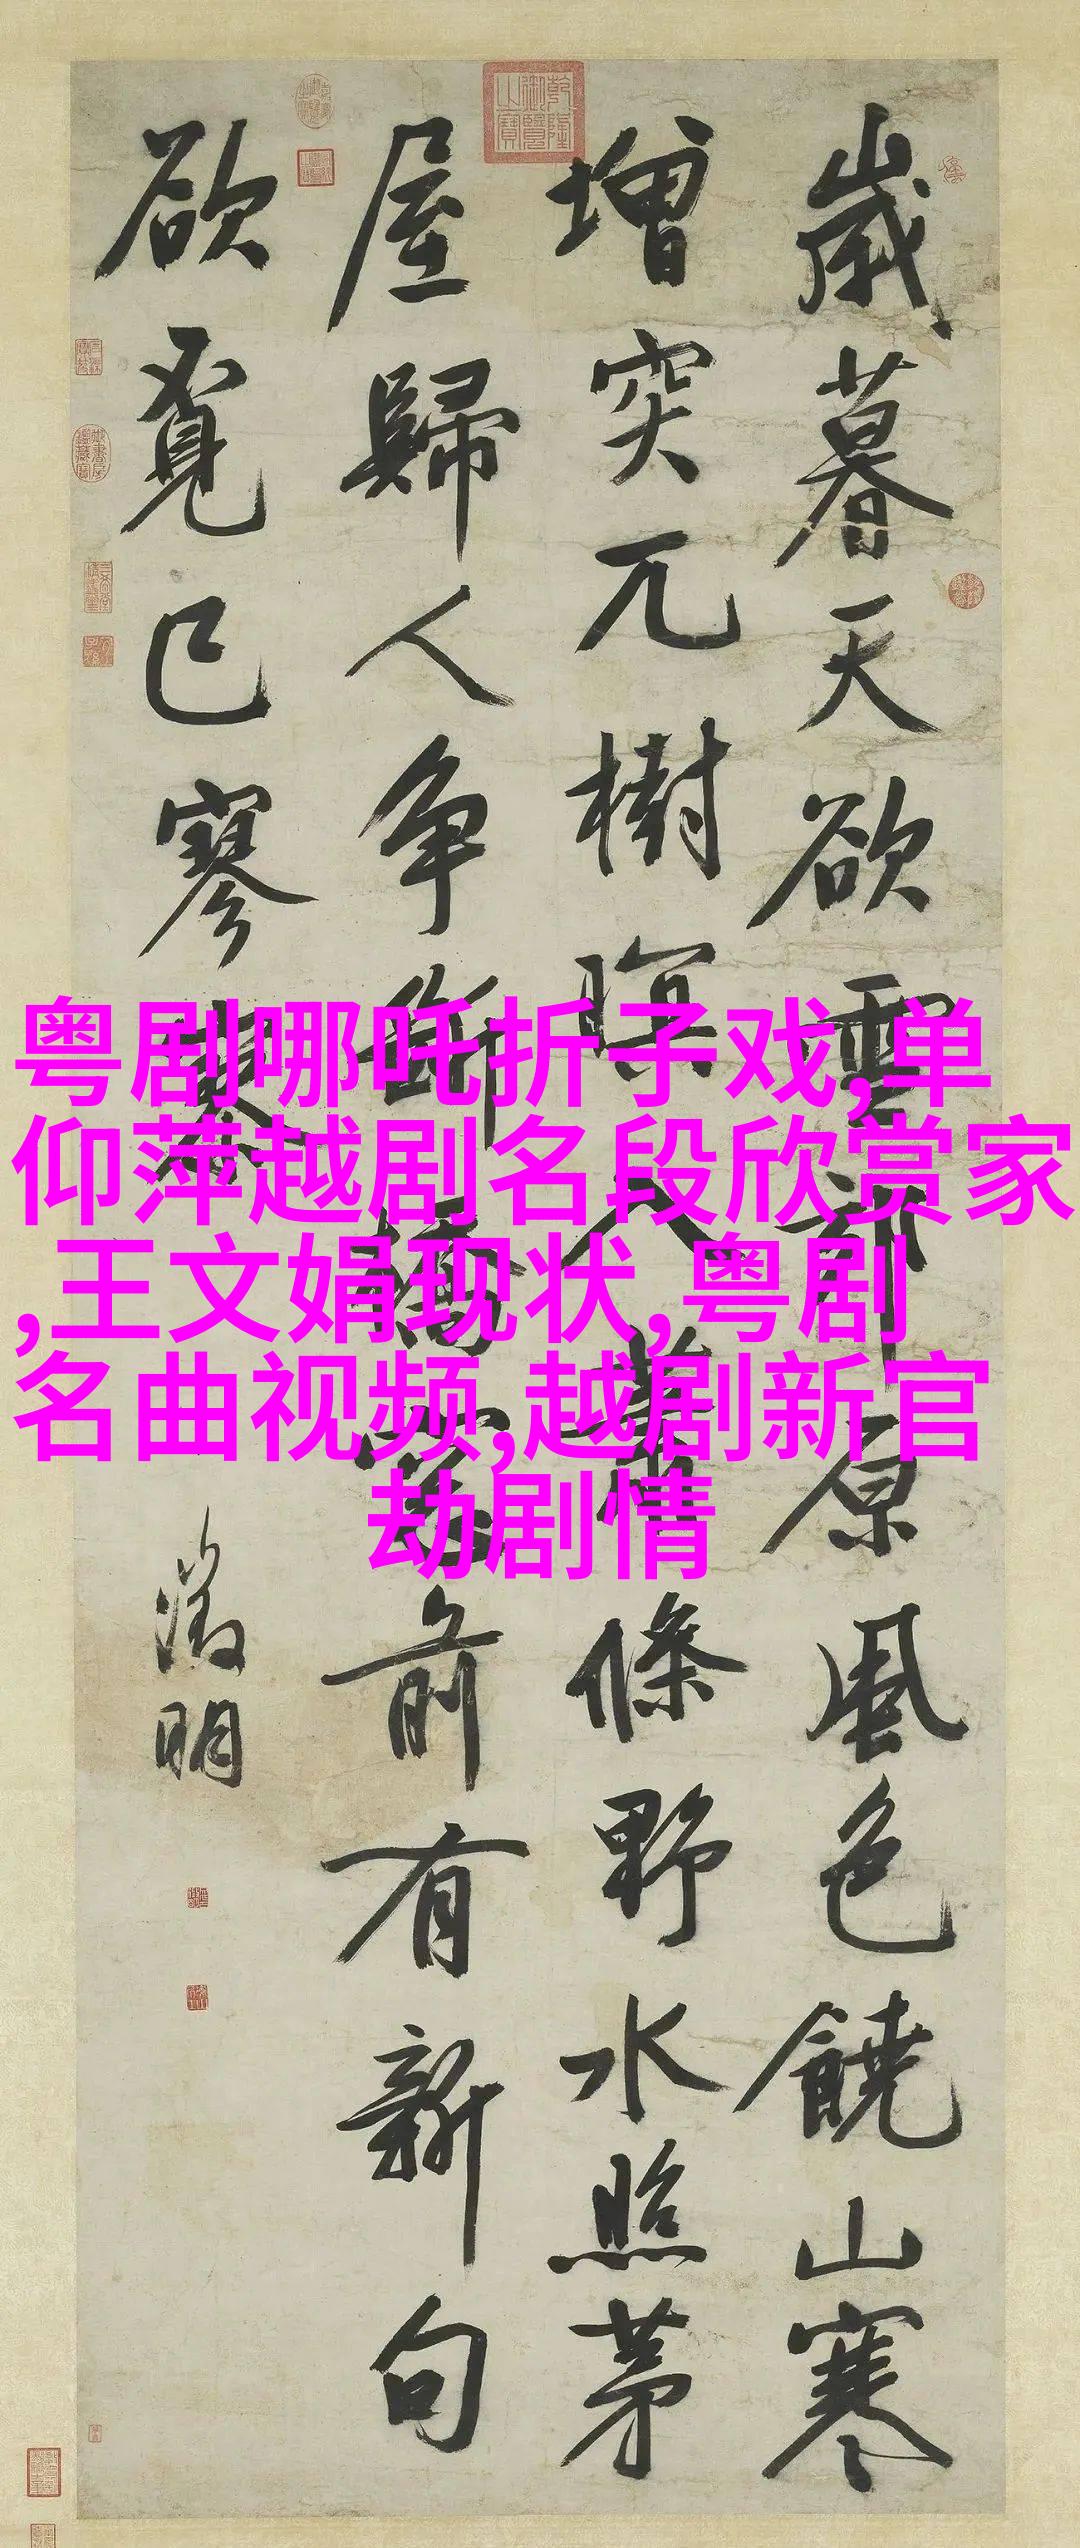 歲暮天欲郊原風色饒山寒
增突兀樹暝入蕭條野水照茅
屋歸人争斷橋前有新句
欲覓已寥
徵明
乾隆御覽之寶
粤剧哪吒折子戏,单
仰萍越剧名段欣赏家
,王文娟现状,粤剧
名曲视频,越剧新官
劫剧情